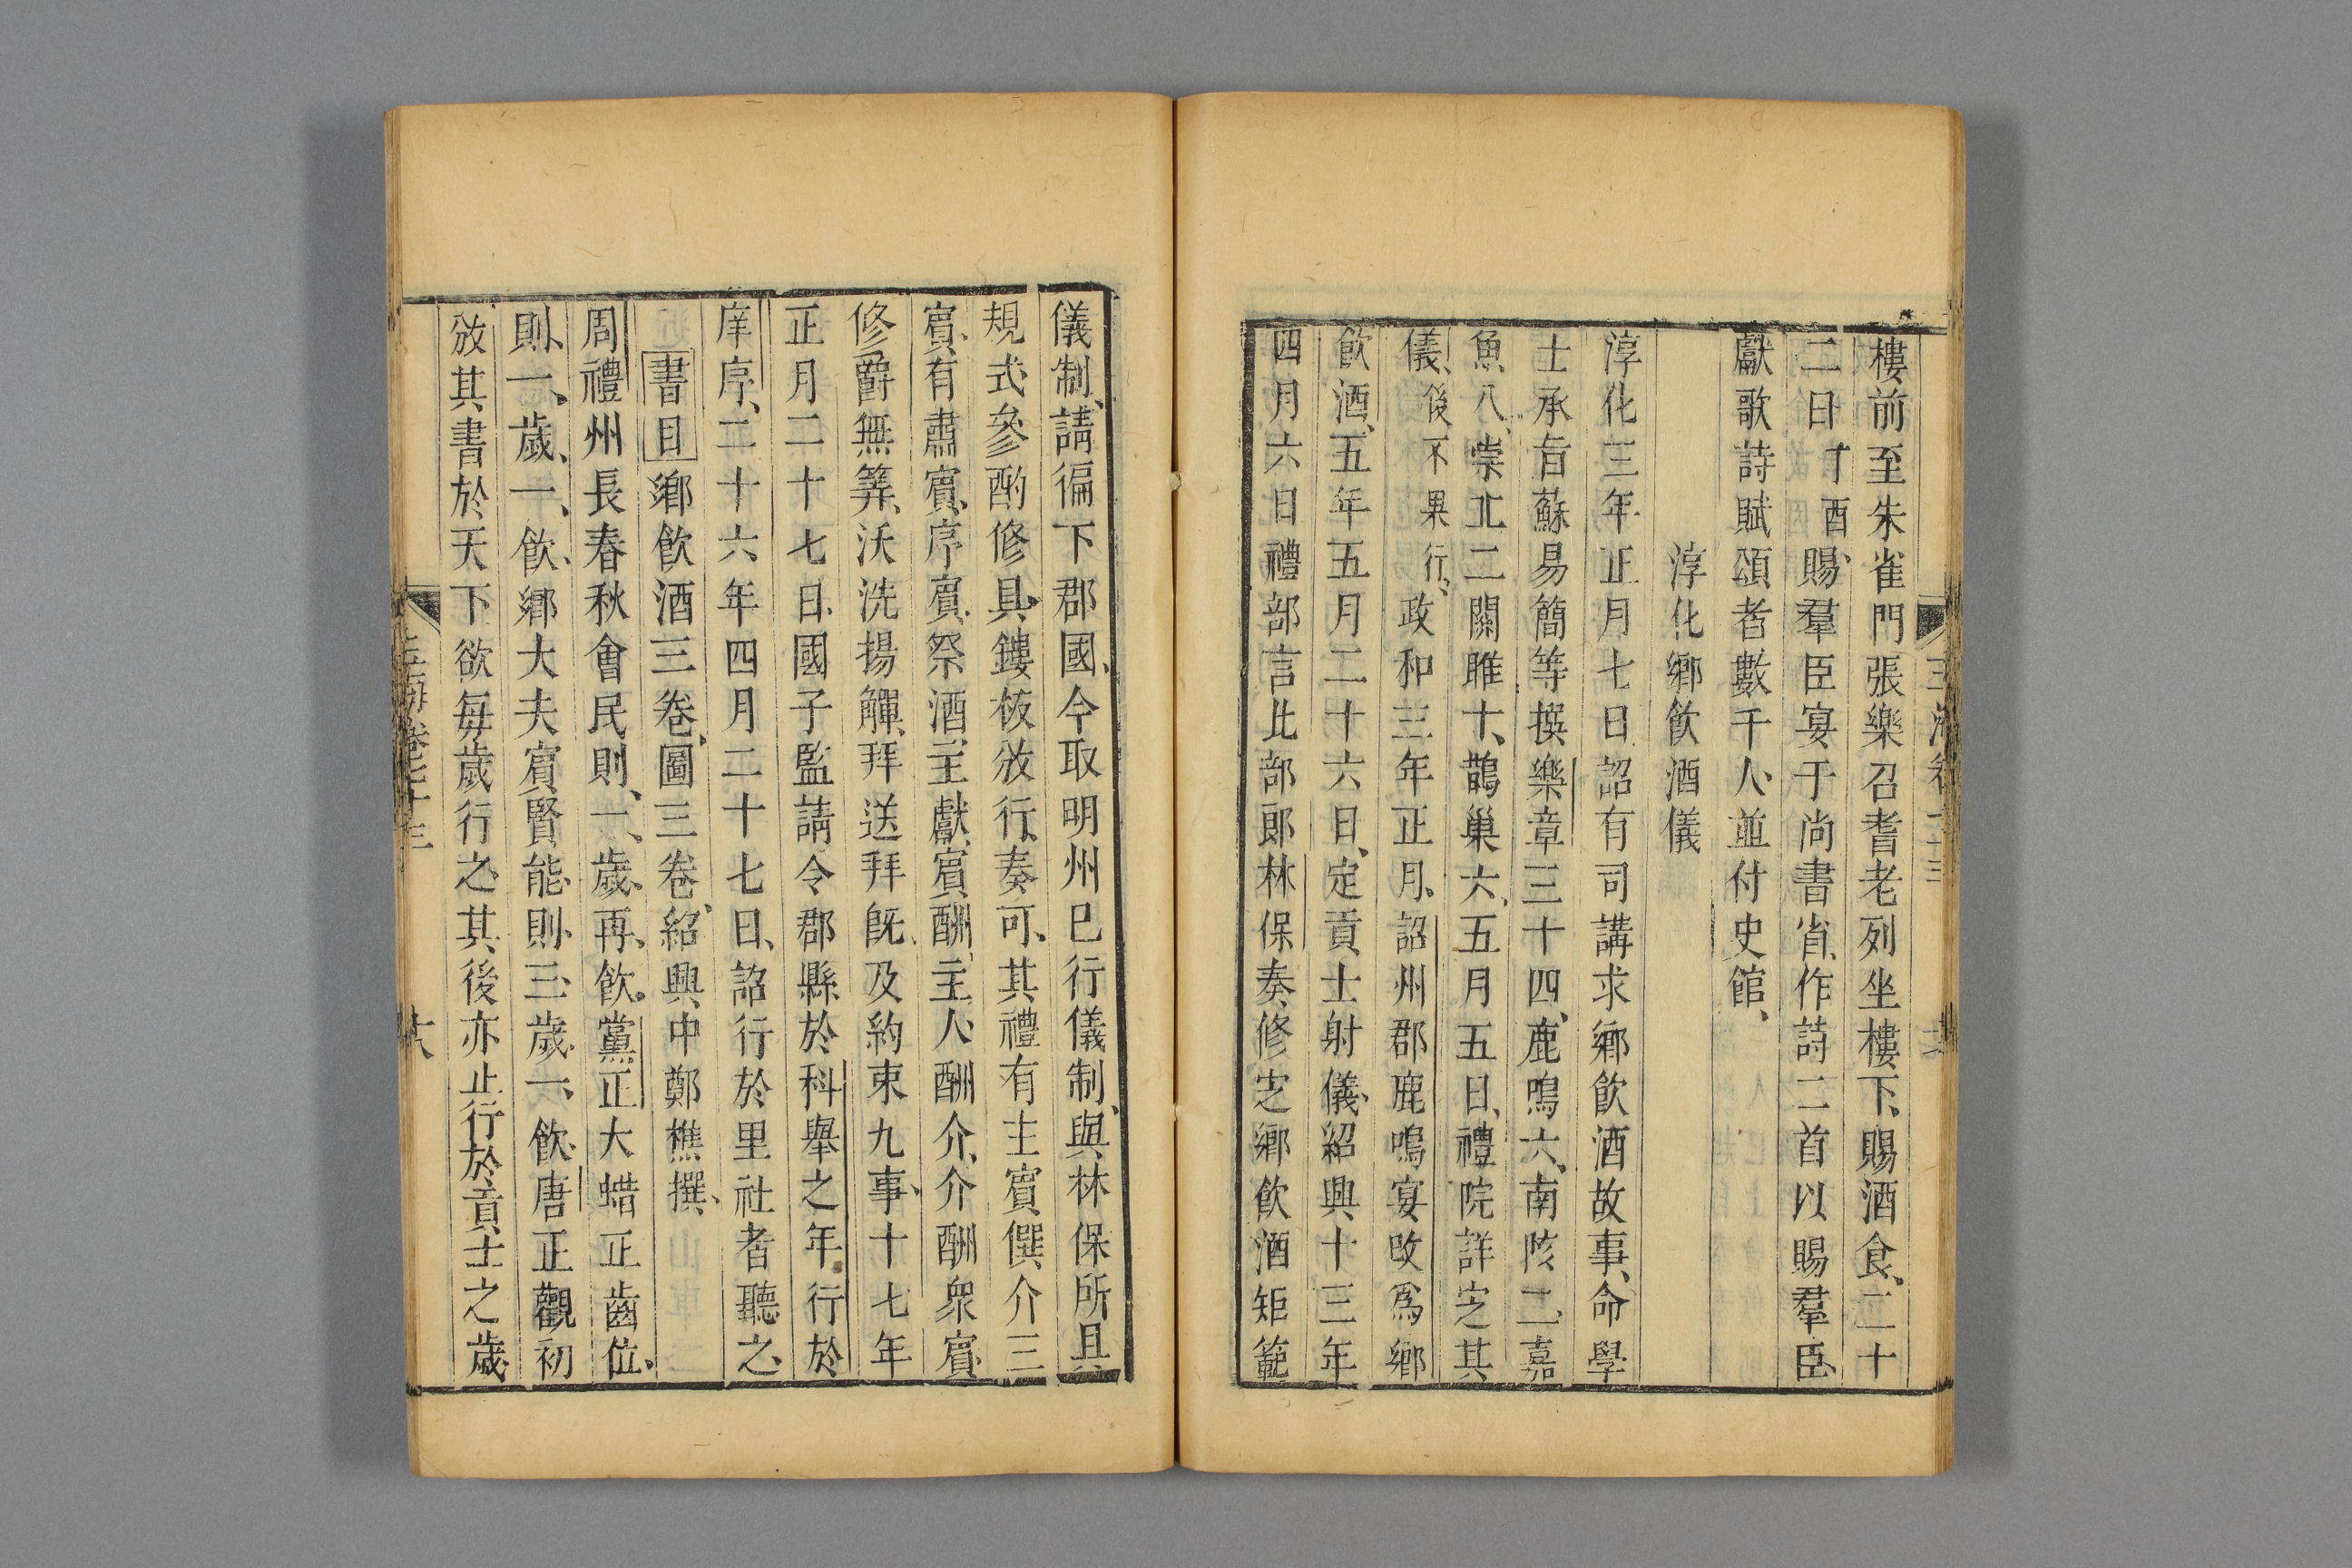 樓前至朱雀門張樂召耆老列坐樓下、賜酒食、二十
二日丁酉、賜羣臣宴于尚書省、作詩二首以賜羣臣、
獻歌詩賦頌者數千人、並付史館、
淳化鄉飲酒儀
淳化三年正月七日詔有司講求鄉飲酒故事、命學
士承旨蘇易簡等撰樂章三十四、鹿鳴六、南陔二、嘉
魚八、崇丘二、關雎十、鵲巢六、五月五日、禮院詳定其
儀、後不果行、政和三年正月、詔州郡鹿鳴宴改爲鄉
飲酒、五年五月二十六日、定貢士射儀、紹興十三年
四月六日禮部言比部郎林保奏、修定鄉飲酒矩範
儀制、請徧下郡國、今取明州已行儀制、與林保所具
規式參酌修具、鏤板放行、奏可、其禮有主賓僎介三
賓、有肅賓、序賓、祭酒、主獻、賓酬、主人酬介、介酬衆賓、
修爵無筭、沃洗揚觶、拜送拜旣、及約束九事、十七年
正月二十七日、國子監請令郡縣於科舉之年行於
庠序、二十六年四月二十七日、詔行於里社者聽之、
書目鄉飲酒三卷、圖三卷、紹興中鄭樵撰、
周禮州長春秋會民則、一、歲、再、飲、黨正大蜡正齒位、
則、一、歲、一、飲、鄉大夫賓賢能、則、三、歲、一、飲、唐正觀初
放其書於天下欲每歲行之、其後亦止行於貢士之歲、
玉海卷七十三
十八